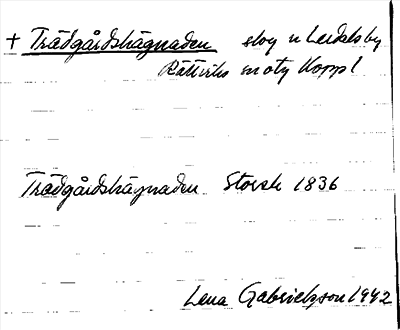 + Trädgårdshägnaden skog n Lerdals by
Rättviks sn otg Koppl
Trädgårdshägnaden Storsk 1836
Lena Gabrielsson 1942